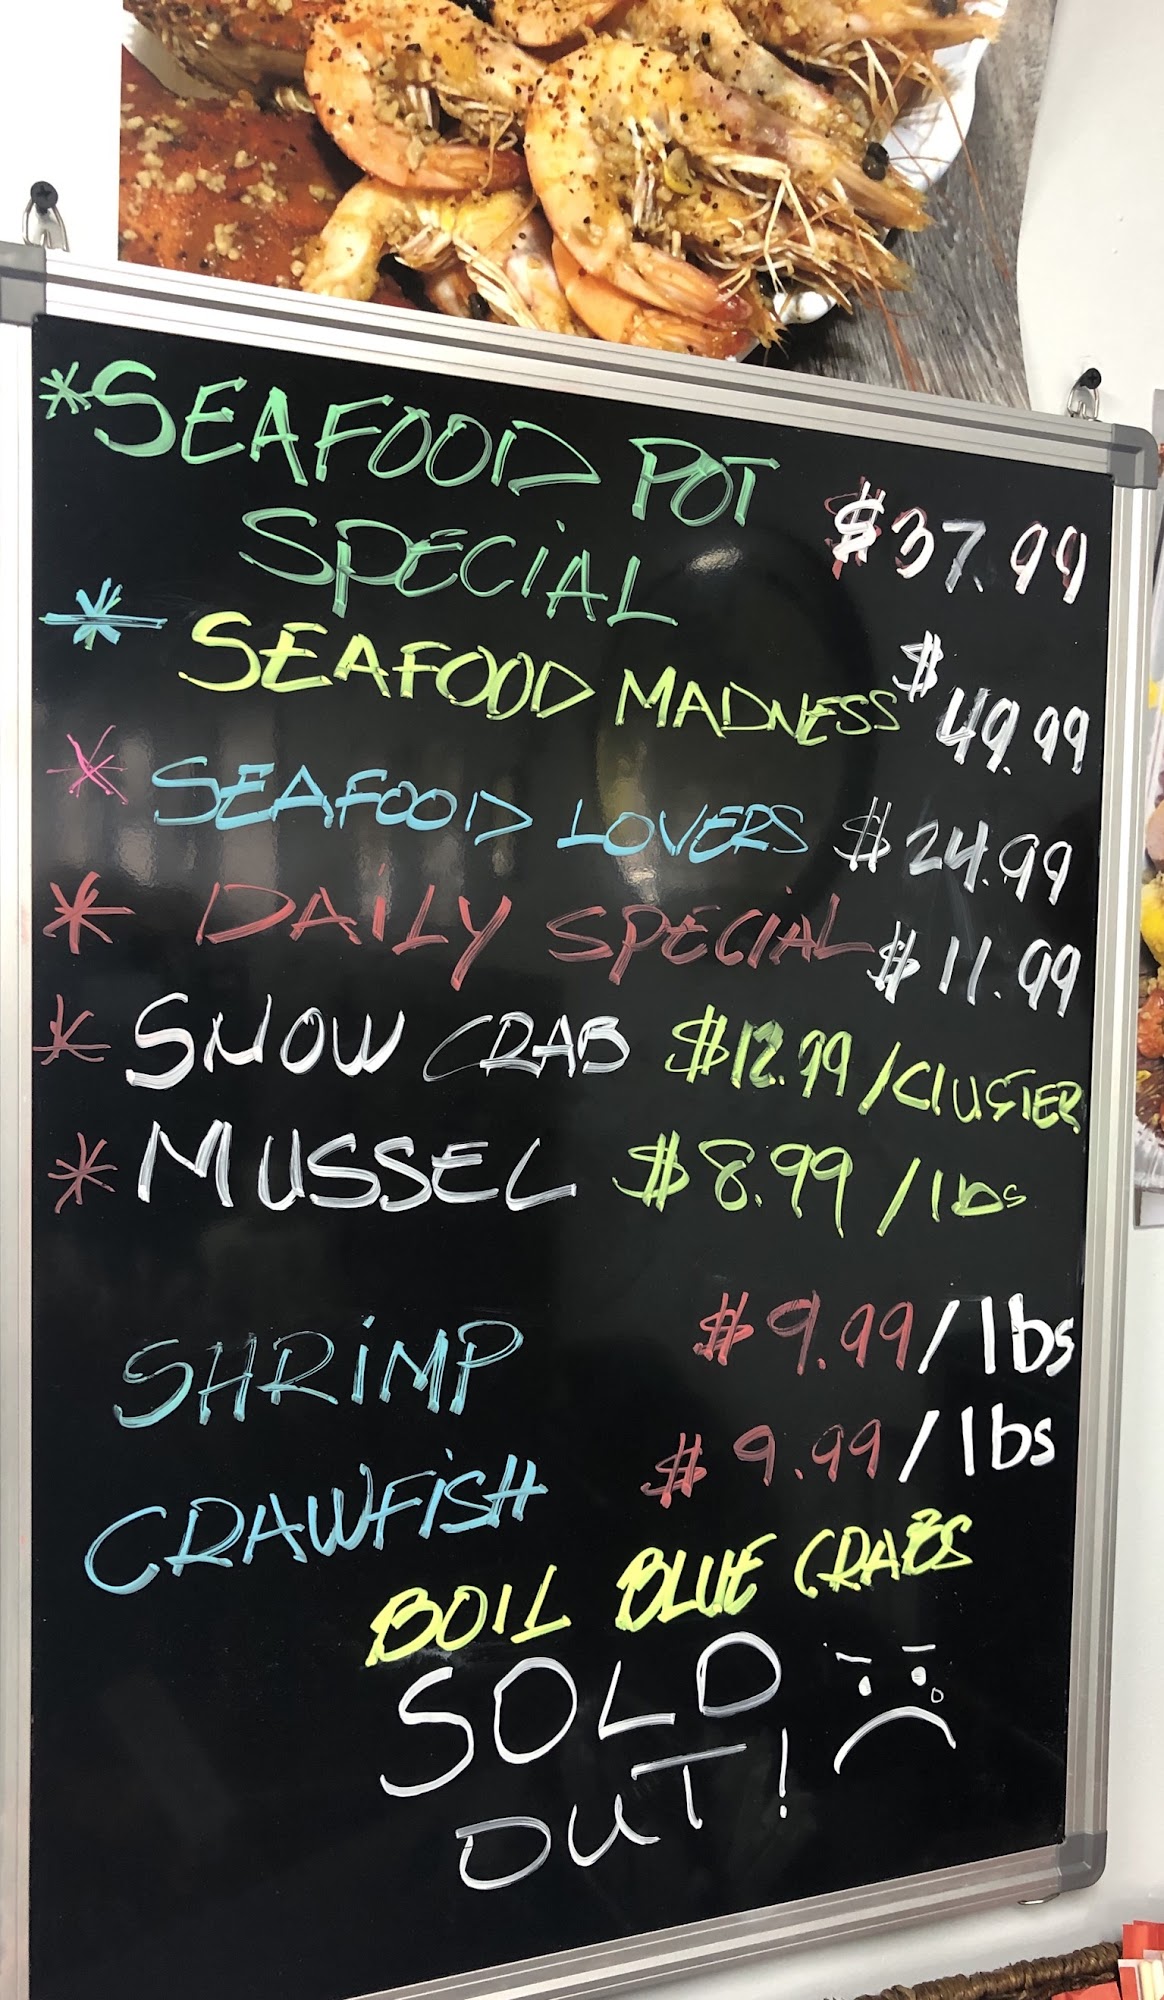 *SEAFOOD POT
SPECiAL $37.99
* SEAFOOD MADNESS $49.99
* SEAFOOD LOVERS $24.99
* DAiLY SPECiAL $11.99
* SNOW CRAB $12.99/CLUSTER
* MUSSEL $8.99/lbs
SHRiMP $9.99/lbs
CRAWFiSH $9.99/lbs
BOIL BLUE CRABS
SOLD
OUT!